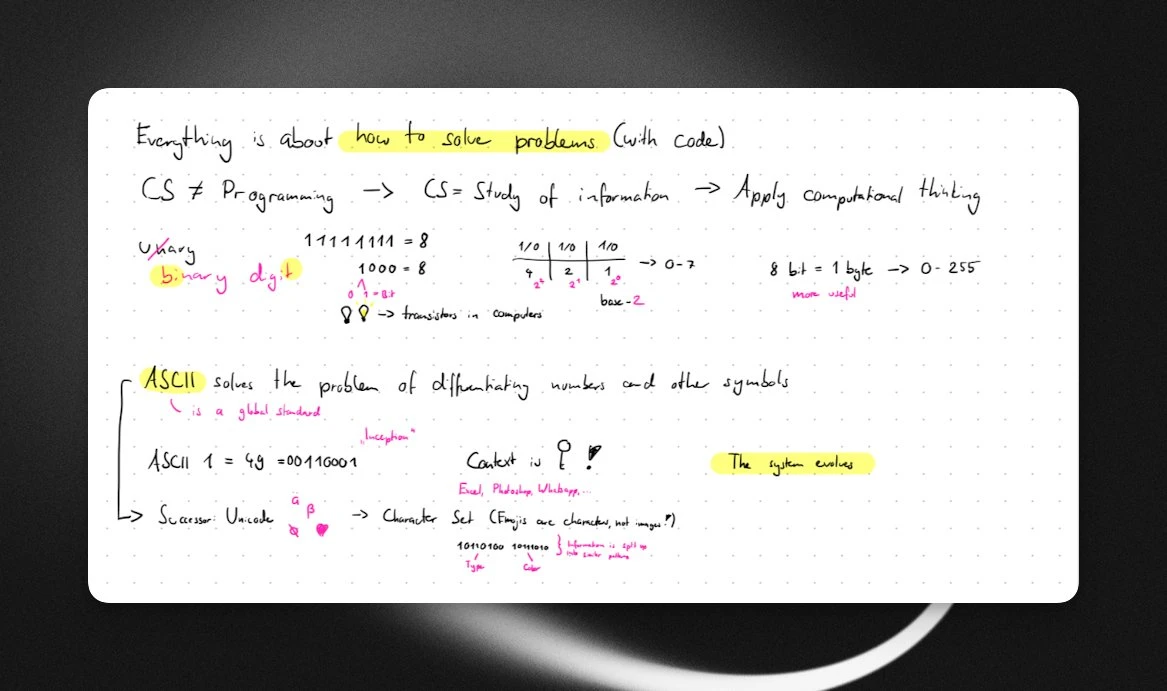 Everything is about how to solve problems (with code)
CS ≠ Programming -> CS = Study of information -> Apply computational thinking
Unary
binary digit
11111111 = 8
1000 = 8
0 1 = Bit
-> transistors in computers
1/0 | 1/0 | 1/0
4 | 2 | 1 -> 0-7
2² 2¹ 2⁰
base-2
8 bit = 1 byte -> 0-255
more useful
ASCII solves the problem of differentiating numbers and other symbols
is a global standard
„Inception"
ASCII 1 = 49 = 00110001
Context is !
Excel, Photoshop, Whatsapp,...
The system evolves
a β
Successor: Unicode -> Character Set (Emojis are characters, not images!)
10110100 10111010 } Information is split up
into similar patterns
Type Color